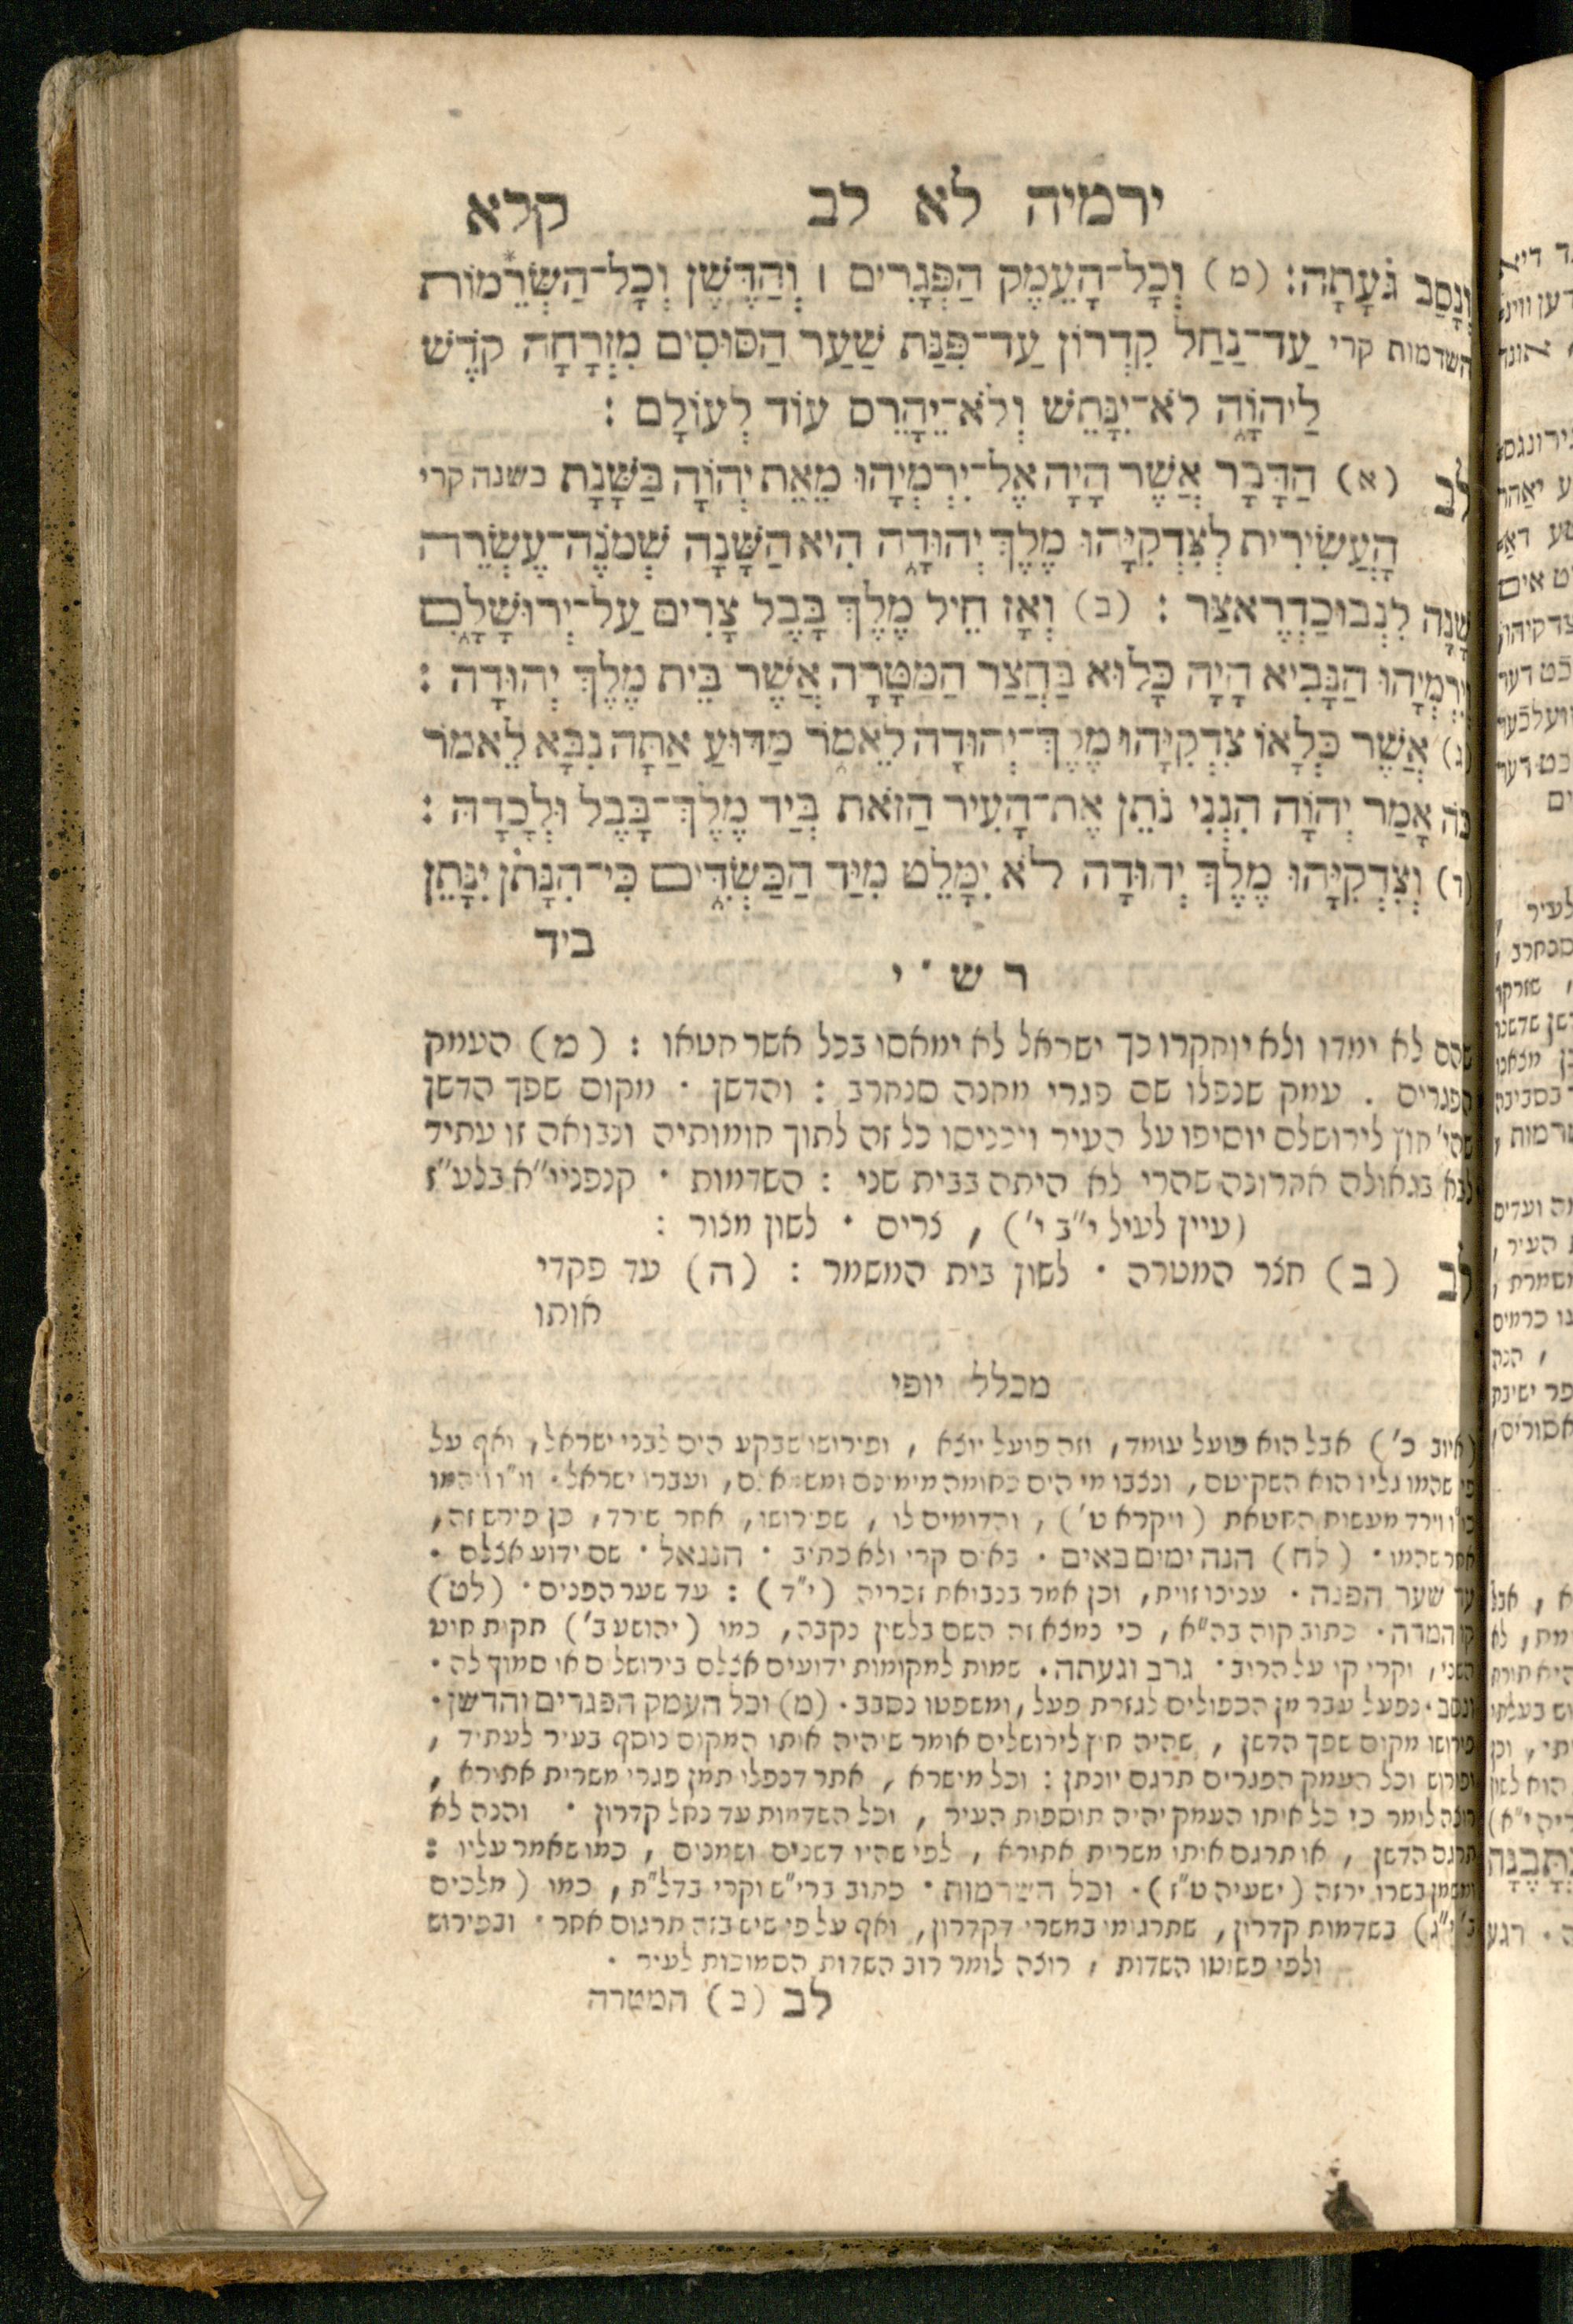 ירמיה לא לב קלא
וְנָסַב גֹּעָתָה: (מ) וְכָל־הָעֵמֶק הַפְּגָרִים ׀ וְהַדֶּשֶׁן וְכָל־הַשְּׂרֵמוֹת
השדמות קרי עַד־נַחַל קִדְרוֹן עַד־פִּנַּת שַׁעַר הַסּוּסִים מִזְרָחָה קֹדֶשׁ
לַיהוָֹה לֹא־יִנָּתֵשׁ וְלֹא־יֵהָרֵס עוֹד לְעוֹלָם :
לב (א) הַדָּבָר אֲשֶׁר הָיָה אֶל־יִרְמְיָהוּ מֵאֵת יְהוָֹה בַּשָּׁנָת בשנה קרי
הָעֲשִׂירִית לְצִדְקִיָּהוּ מֶלֶךְ יְהוּדָה הִיא הַשָּׁנָה שְׁמֹנֶה־עֶשְׂרֵה
שָׁנָה לִנְבוּכַדְרֶאצַּר : (ב) וְאָז חֵיל מֶלֶךְ בָּבֶל צָרִים עַל־יְרוּשָׁלָםִ
וְיִרְמְיָהוּ הַנָּבִיא הָיָה כָלוּא בַּחֲצַר הַמַּטָּרָה אֲשֶׁר בֵּית מֶלֶךְ יְהוּדָה :
(ג) אֲשֶׁר כְּלָאוֹ צִדְקִיָּהוּ מֶלֶךְ־יְהוּדָה לֵאמֹר מַדּוּעַ אַתָּה נִבָּא לֵאמֹר
כֹּה אָמַר יְהוָֹה הִנְנִי נֹתֵן אֶת־הָעִיר הַזֹּאת בְּיַד מֶלֶךְ־בָּבֶל וּלְכָדָהּ :
(ד) וְצִדְקִיָּהוּ מֶלֶךְ יְהוּדָה לֹא יִמָּלֵט מִיַּד הַכַּשְׂדִּים כִּי־הִנָּתֹן יִנָּתֵן
ביד
רש״י
שהם לא ימדו ולא יוחקרו כך ישראל לא ימאסו בכל אשר חטאו : (מ) העמק
הפגרים . עמק שנפלו שם פגרי מחנה סנחרב : והדשן · מקום שפך הדשן
שהי' חוץ לירושלם יוסיפו על העיר ויכניסו כל זה לתוך חומותיה ונבואה זו עתיד
לבא בגאולה אחרונה שהרי לא היתה בבית שני : השדמות · קנפניי"א בלע"ז
(עיין לעיל י"ב י') , צרים · לשון מצור :
לב (ב) חצר המטרה · לשון בית המשמר : (ה) עד פקדי
אותו
מכלל יופי
(איוב כ') אבל הוא פועל עומד, וזה פועל יוצא , ופירושו שבקע הים לבני ישראל, ואף על
פי שהמו גליו הוא השקיטם, ונצבו מי הים כחומה מימינם ומשמאלם, ועברו ישראל· וי"ו ויהמו
כוי"ו וירד מעשות החטאת (ויקרא ט'), והדומים לו , שפירושו, אחר שירד, כן פירש זה,
אחר שהמו · (לח) הנה ימים באים · באים קרי ולא כתיב · חננאל · שם ידוע אצלם ·
עד שער הפנה · ענינו זוית, וכן אמר בנבואת זכריה (י"ד) : עד שער הפנים · (לט)
קו המדה · כתוב קוה בה"א, כי נמצא זה השם בלשון נקבה, כמו (יהושע ב') תקות חוט
השני, וקרי קו על הרוב · גרב וגעתה· שמות למקומות ידועים אצלם בירושלים או סמוך לה ·
ונסב · נפעל עבר מן הכפולים לגזרת פעל, ומשפטו נסבב · (מ) וכל העמק הפגרים והדשן ·
פירושו מקום שפך הדשן , שהיה חוץ לירושלים אומר שיהיה אותו המקום נוסף בעיר לעתיד ,
ופירוש וכל העמק הפגרים תרגם יונתן : וכל מישרא , אתר דנפלו תמן פגרי משרית אתורא ,
רוצה לומר כי כל אותו העמק יהיה תוספות העיר , וכל השדמות עד נחל קדרון · והנה לא
תרגם הדשן , או תרגם אותו משרית אתורא , לפי שהיו דשנים ושמנים , כמו שאמר עליו :
ומשמן בשרו ירזה (ישעיה ט"ז) · וכל השרמות · כתוב ברי"ש וקרי בדל"ת, כמו (מלכים
ב' י"ג) בשדמות קדרון, שתרגומו במשרי דקדרון, ואף על פי שיש בזה תרגום אחר · ובפירוש
ולפי פשוטו השדות , רוצה לומר רוב השדות הסמוכות לעיר ·
לב (ב) המטרה